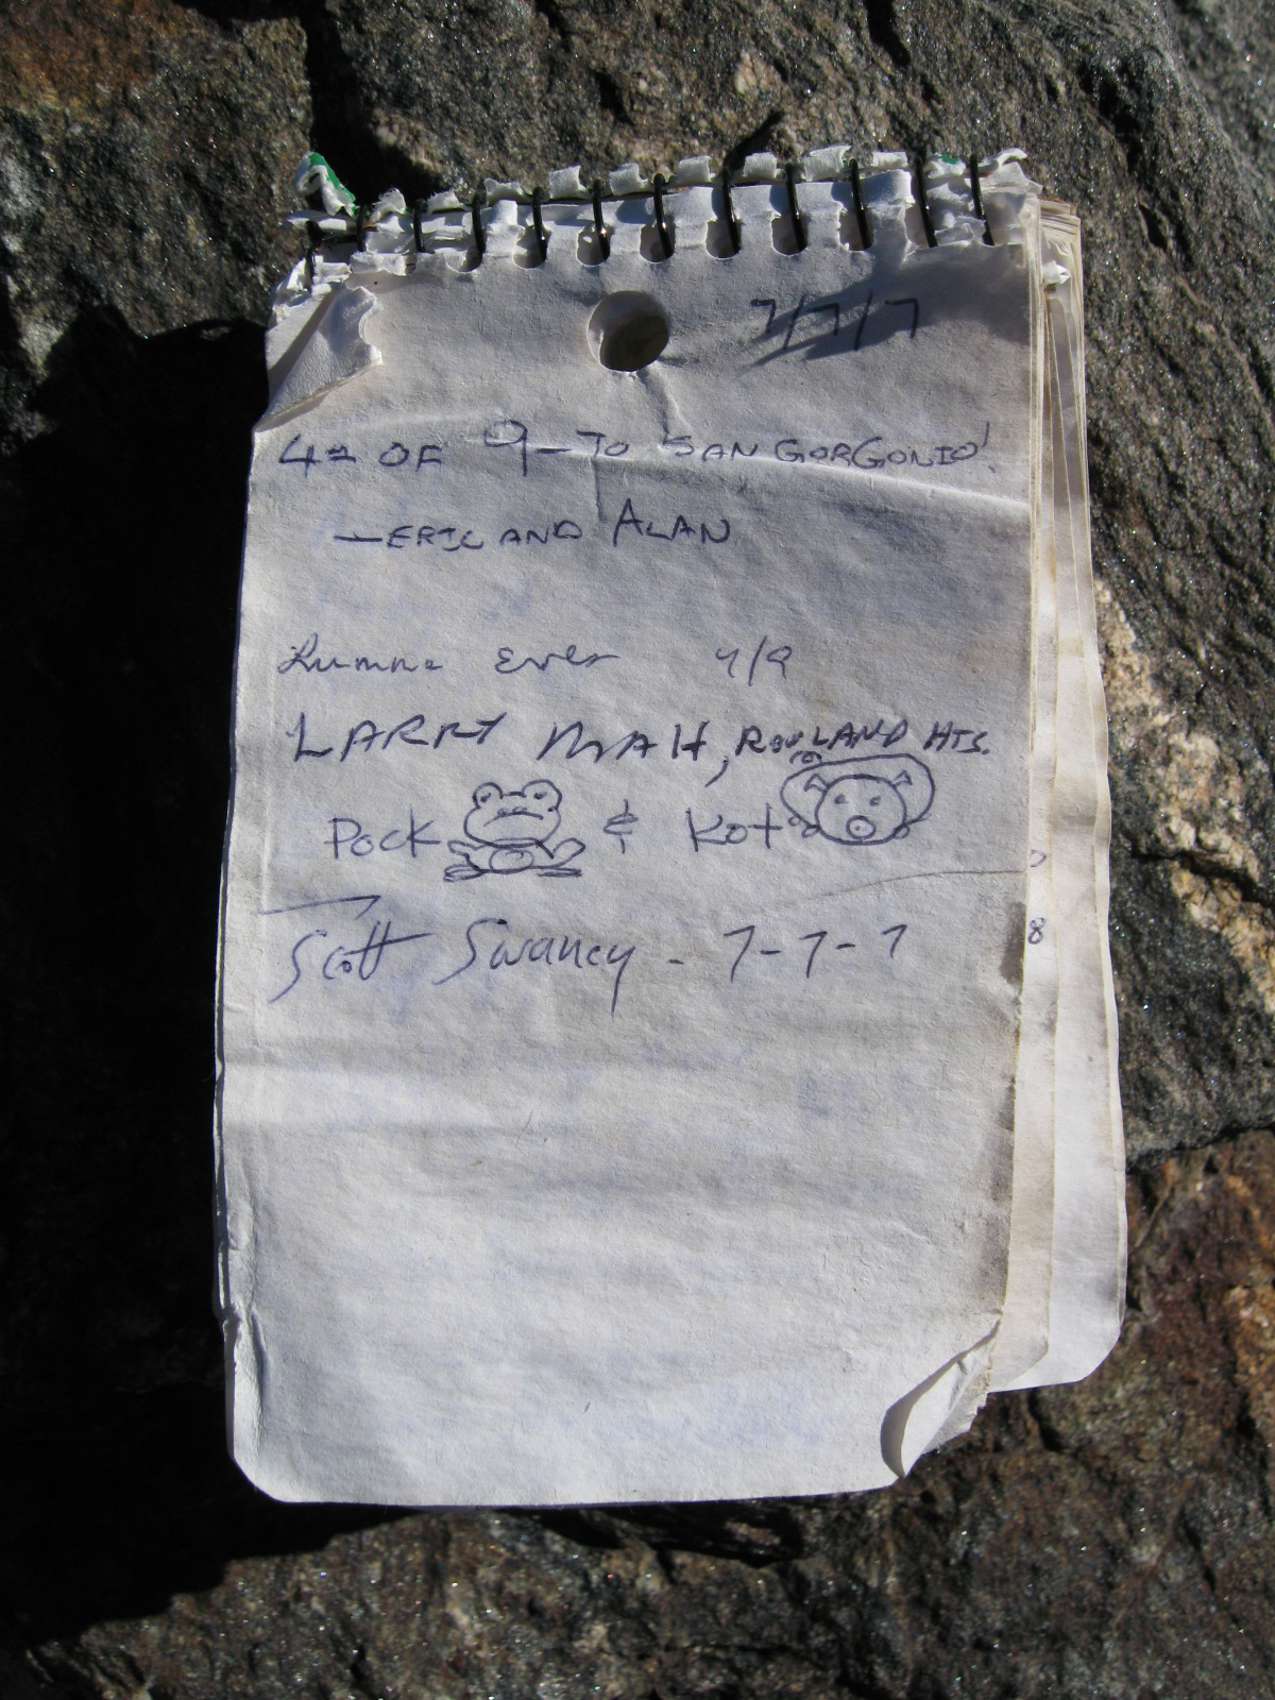 7/7/7
4th OF 9 - TO SAN GORGONIO!
- ERIC AND ALAN
4/9
LARRY MAH, ROWLAND HTS.
Pock & Kot
Scott Swaney - 7-7-7
8